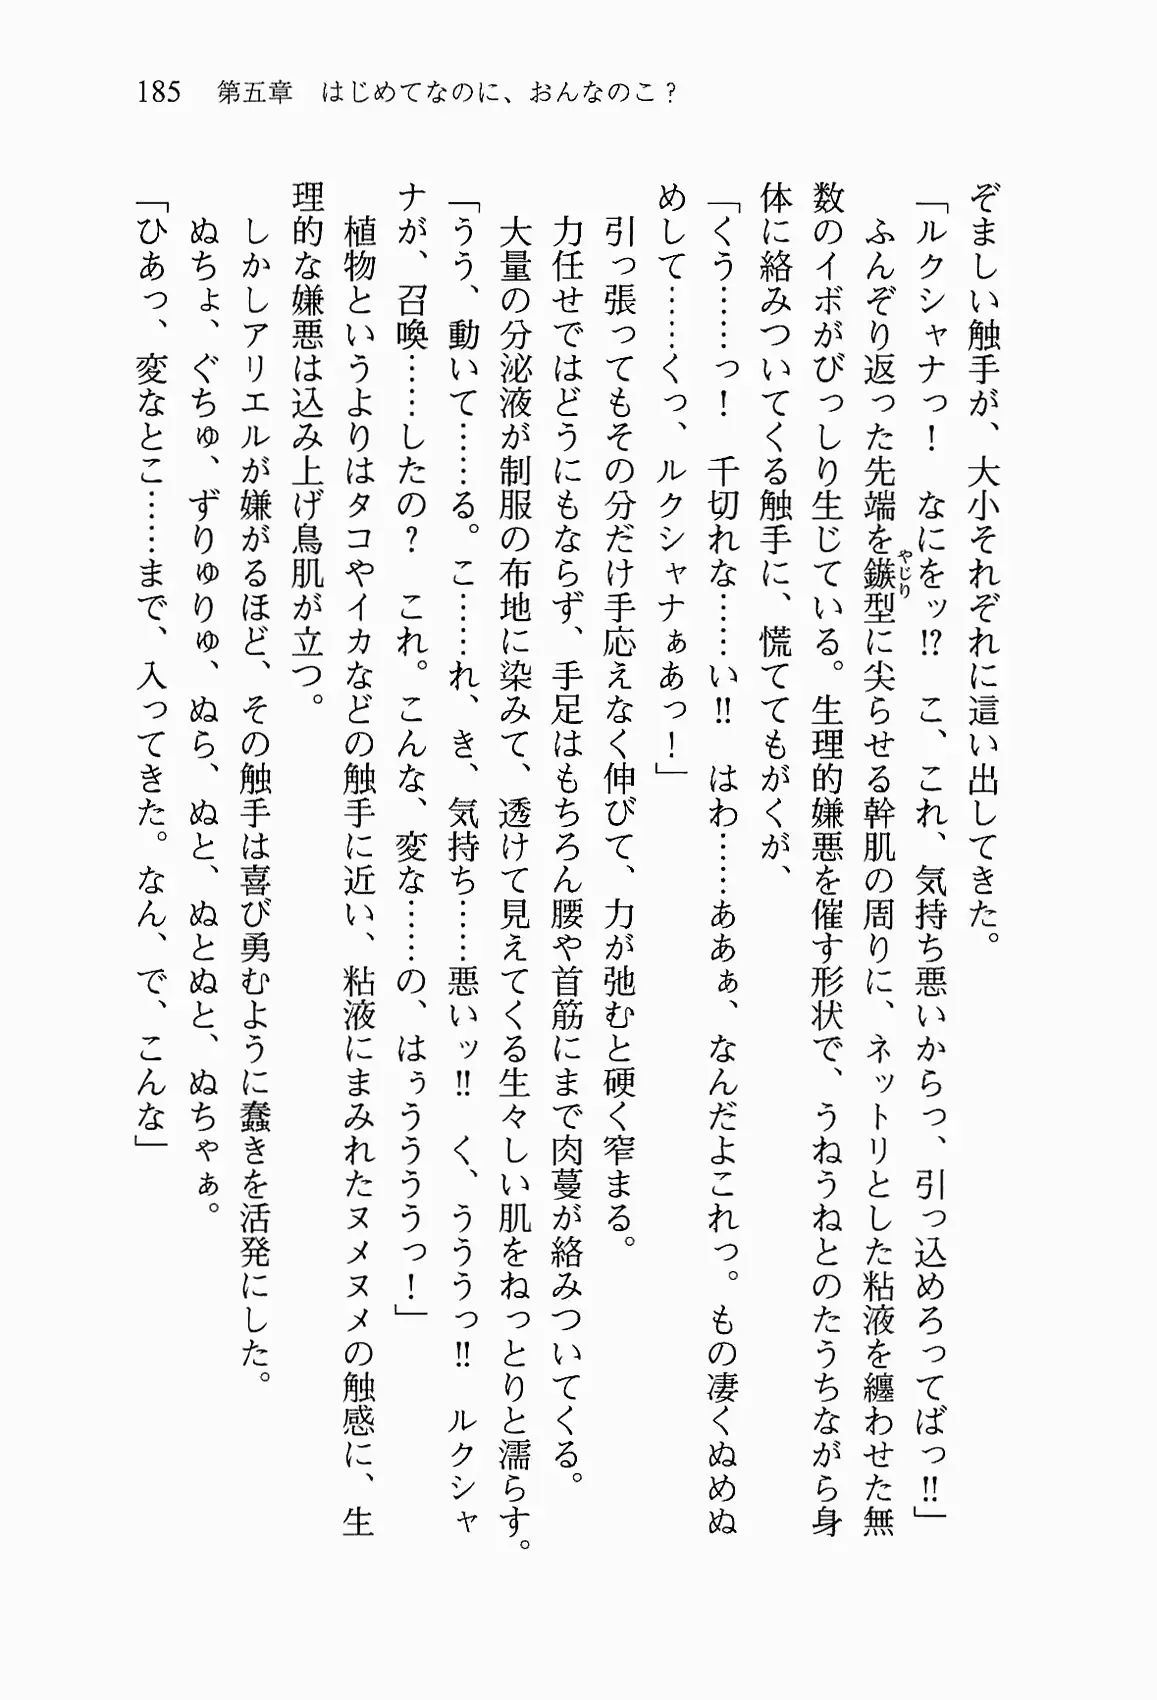 185　第五章　はじめてなのに、おんなのこ？
ぞましい触手が、大小それぞれに這い出してきた。
「ルクシャナっ！　なにをッ!?　こ、これ、気持ち悪いからっ、引っ込めろってばっ!!」
　ふんぞり返った先端を鏃型に尖らせる幹肌の周りに、ネットリとした粘液を纏わせた無
やじり
数のイボがびっしり生じている。生理的嫌悪を催す形状で、うねうねとのたうちながら身
体に絡みついてくる触手に、慌ててもがくが、
「くう……っ！　千切れな……い!!　はわ……ああぁ、なんだよこれっ。もの凄くぬめぬ
めして……くっ、ルクシャナぁあっ！」
　引っ張ってもその分だけ手応えなく伸びて、力が弛むと硬く窄まる。
　力任せではどうにもならず、手足はもちろん腰や首筋にまで肉蔓が絡みついてくる。
　大量の分泌液が制服の布地に染みて、透けて見えてくる生々しい肌をねっとりと濡らす。
「うう、動いて……る。こ……れ、き、気持ち……悪いッ!!　く、うううっ!!　ルクシャ
ナが、召喚……したの？　これ。こんな、変な……の、はぅうううっ！」
　植物というよりはタコやイカなどの触手に近い、粘液にまみれたヌメヌメの触感に、生
理的な嫌悪は込み上げ鳥肌が立つ。
　しかしアリエルが嫌がるほど、その触手は喜び勇むように蠢きを活発にした。
　ぬちょ、ぐちゅ、ずりゅりゅ、ぬら、ぬと、ぬとぬと、ぬちゃぁ。
「ひあっ、変なとこ……まで、入ってきた。なん、で、こんな」